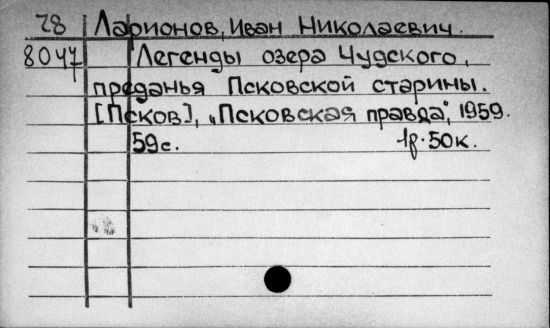 28 Ларионов, Иван Николаевич.
8047 Легенды озера Чудского,
преданья Псковской старины.
[Псков], „Псковская правда", 1959.
59с. 1р. 50к.